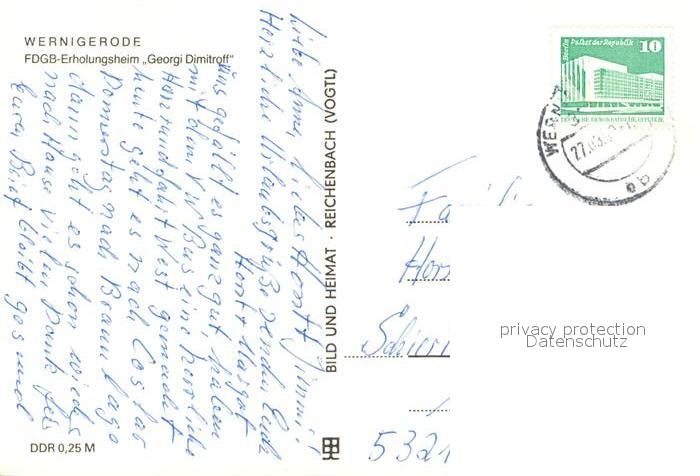 WERNIGERODE
FDGB-Erholungsheim „Georgi Dimitroff"
Liebe Anne, lieber Horst,
Herzliche Urlaubsgrüße senden Euch
Horst + Margot
uns gefällt es ganz gut, haben
mit dem VW Bus eine herrliche
Harzrundfahrt West gemacht
heute geht es nach Goslar
Donnerstag nach Braunlage
dann geht es schon wieder
nach Hause vielen Dank für
Euren Brief bleibt gesund
DDR 0,25 M
BILD UND HEIMAT · REICHENBACH (VOGTL)
Berlin Palast der Republik 10
DEUTSCHE DEMOKRATISCHE REPUBLIK
WERN
27.
eb
Fa
Hor
Schier
5321
privacy protection
Datenschutz